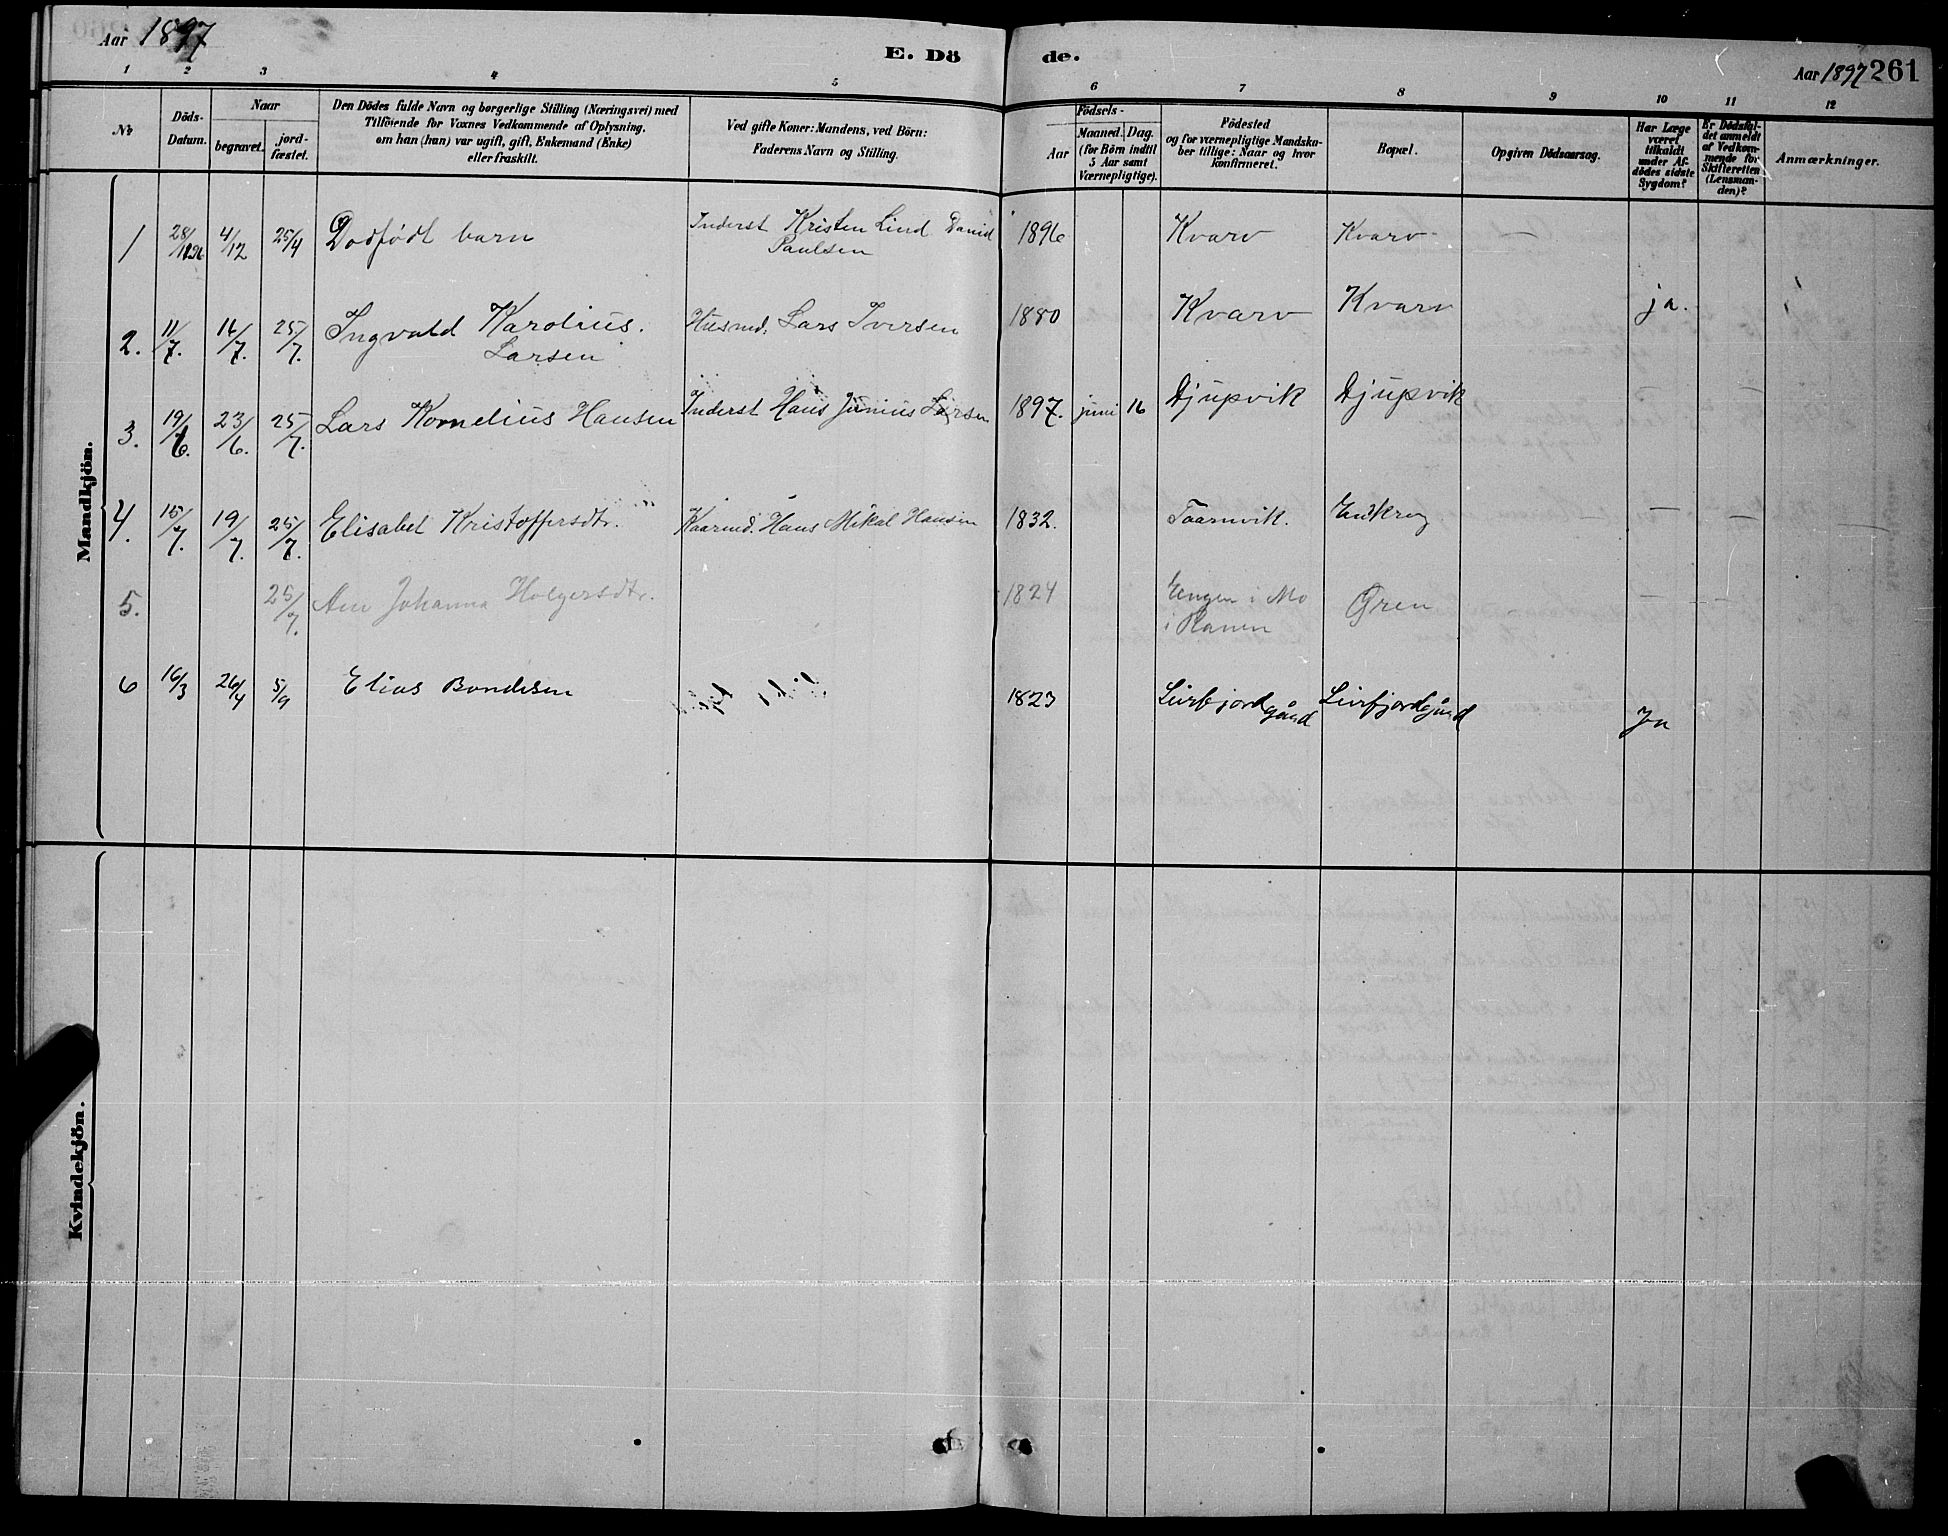 Aar 1897
E. Dö
de.
Aar 1897 261
1 2 3 4 5 6 7 8 9 10 11 12
No
Döds-Datum.
Naar
begravet.
jord-fæstet.
Den Dödes fulde Navn og borgerlige Stilling (Næringsvei) med
Tilföiende for Voxnes Vedkommende af Oplysning,
om han (hun) var ugift, gift, Enkemand (Enke)
eller fraskilt.
Ved gifte Koner: Mandens, ved Börn:
Faderens Navn og Stilling.
Födsels-
Aar
Maaned. Dag.
(for Börn indtil
5 Aar samt
Værnepligtige).
Födested
og for værnepligtige Mandska-
ber tillige: Naar og hvor
konfirmeret.
Bopæl.
Opgiven Dödsaarsag.
Har Læge
været
tilkaldt
under Af-
dödes sidste
Sygdom?
Er Dödsfal-
det anmeldt
af Vedkom-
mende for
Skifteretten
(Lensman-
den)?
Anmærkninger.
Mandkjön.
1 28/11 1896 4/12 25/4 Dødfødt barn Inderst Kristen Lind Daniel Paulsen 1896 Kvarv Kvarv —
2. 11/7. 16/7. 25/7. Ingvald Karolius. Larsen Husmd. Lars Iversen 1880 Kvarv Kvarv ja.
3. 19/6. 23/6. 25/7. Lars Kornelius Hansen Inderst Hans Junius Larsen 1897. juni 16 Djupvik Djupvik — —
4. 15/7. 19/7. 25/7. Elisabet Kristoffersdtr. Kaarmd. Hans Mikal Hansen 1832. Taarnvik. — — —
5. 25/7. Ane Johanna Holgersdtr. 1824 Engen i Mo i Ranen Gren — — —
6 16/3 26/4 5/9 Elias Bendisen 1823 Leirfjordgård Leirfjordgård Ja
Kvindekjön.